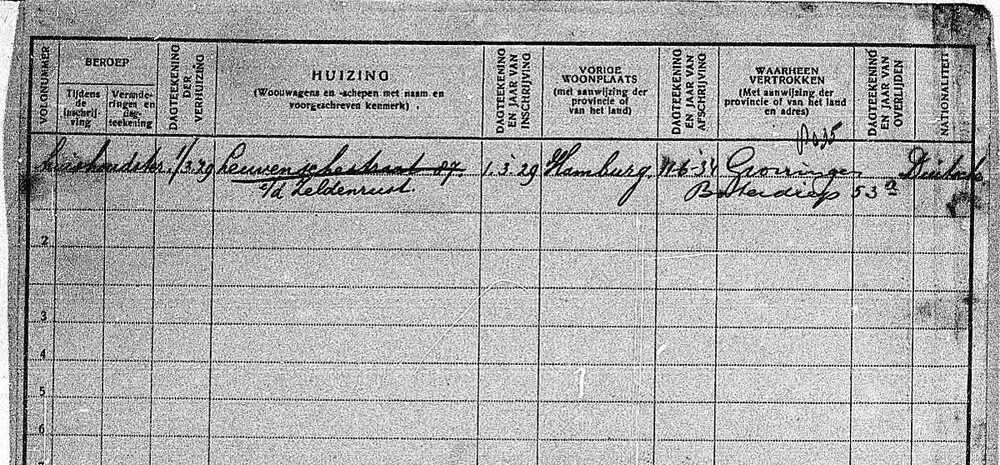 VOLGNUMMER
BEROEP
Tijdens de inschrij-ving
Verande-ringen en dag-teekening
DAGTEEKENING DER VERHUIZING
HUIZING
(Woonwagens en -schepen met naam en voorgeschreven kenmerk)
DAGTEEKENING EN JAAR VAN INSCHRIJVING
VORIGE WOONPLAATS
(met aanwijzing der provincie of van het land)
DAGTEEKENING EN JAAR VAN AFSCHRIJVING
WAARHEEN VERTROKKEN
(Met aanwijzing der provincie of van het land en adres)
DAGTEEKENING EN JAAR VAN OVERLIJDEN
NATIONALITEIT
huishoudster 1/3.29 Leuvenschestraat 87. 1.3.29 Hamburg 11-6-34 Groningen Duitsche
c/d Zeldenrust. Boterdiep 53a
2
3
4
5
6